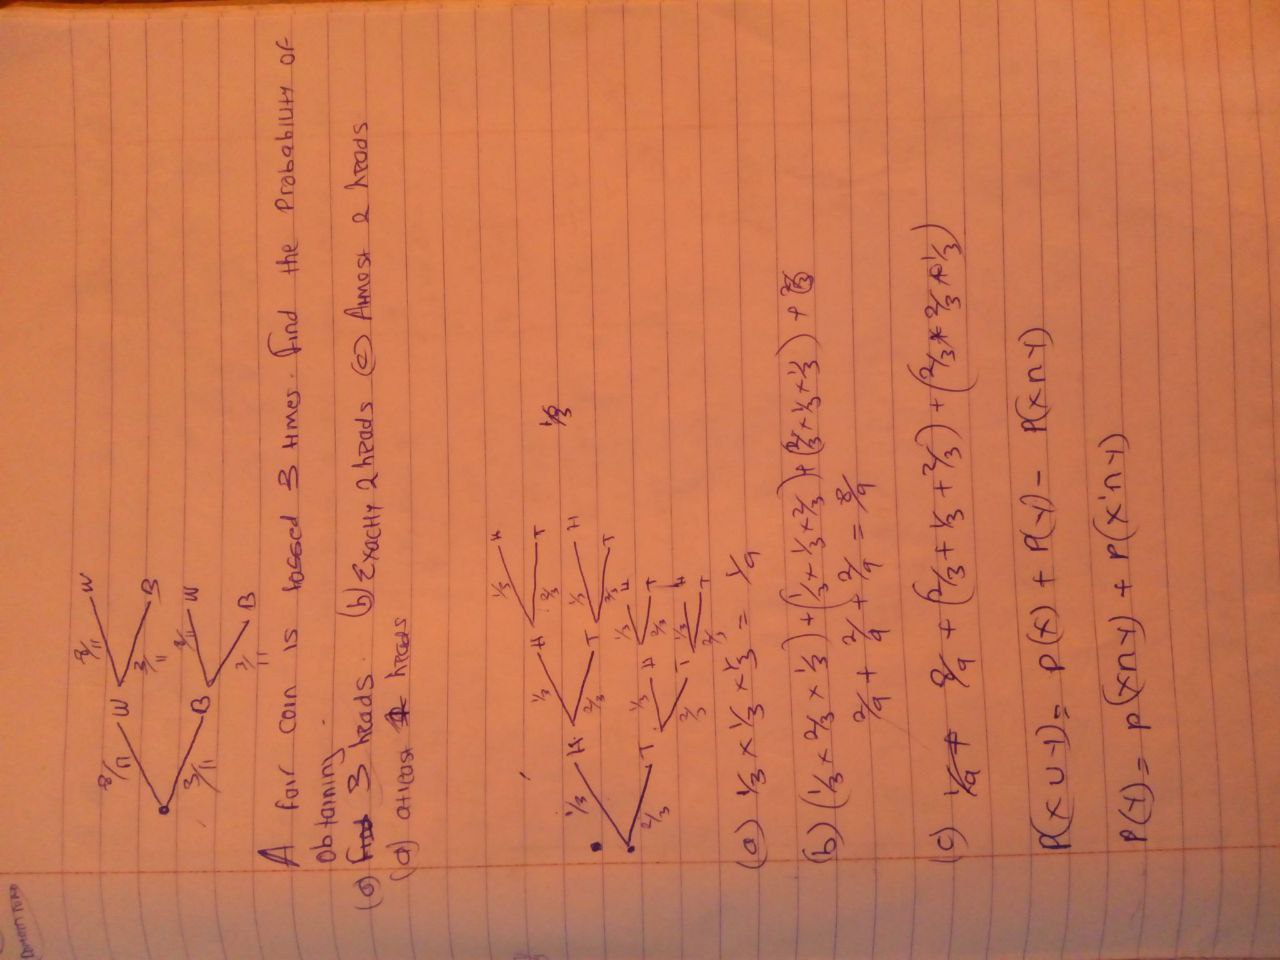 8/11 W 8/11 W
3/11 B
3/11 B 8/11 W
3/11 B
A fair coin is tossed 3 times. Find the Probability of
obtaining.
(a) Find 3 heads. (b) Exactly 2 heads (c) Atmost 2 heads
(d) atleast heads
1/3 H 1/3 H 1/3 H
2/3 T
2/3 T 1/3 H
2/3 T
2/3 T 1/3 H 1/3 H
2/3 T
2/3 T 1/3 H
2/3 T
1/3
(a) 1/3 × 1/3 × 1/3 = 1/9
(b) (1/3 × 2/3 × 1/3) + (1/3 + 1/3 + 2/3) + (2/3 + 1/3 + 1/3) +
2/9 + 2/9 + 2/9 = 8/9
(c) 1/9 + 8/9 + (2/3 + 1/3 + 2/3) + (2/3 × 2/3 × 1/3)
P(X ∪ Y) = P(X) + P(Y) - P(X∩Y)
P(Y) = P(X∩Y) + P(X'∩Y)